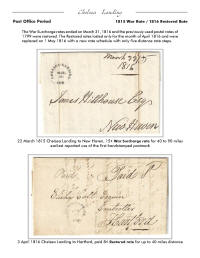 Chelsea Landing
Post Office Period
1815 War Rate / 1816 Restored Rate
The War Surcharge rates ended on March 31, 1816 and the previously used postal rates of
1799 were restored. The Restored rates lasted only for the month of April 1816 and were
replaced on 1 May 1816 with a new rate schedule with only five distance rate steps.
March 22
1816
James Hillhouse Esq
New Haven
22 March 1815 Chelsea Landing to New Haven, 15¢ War Surcharge rate for 40 to 90 miles
earliest reported use of the first handstamped postmark
Paid 8
Elisha Colt Esquire
Controller
Hartford
3 April 1816 Chelsea Landing to Hartford, paid 8¢ Restored rate for up to 40 miles distance